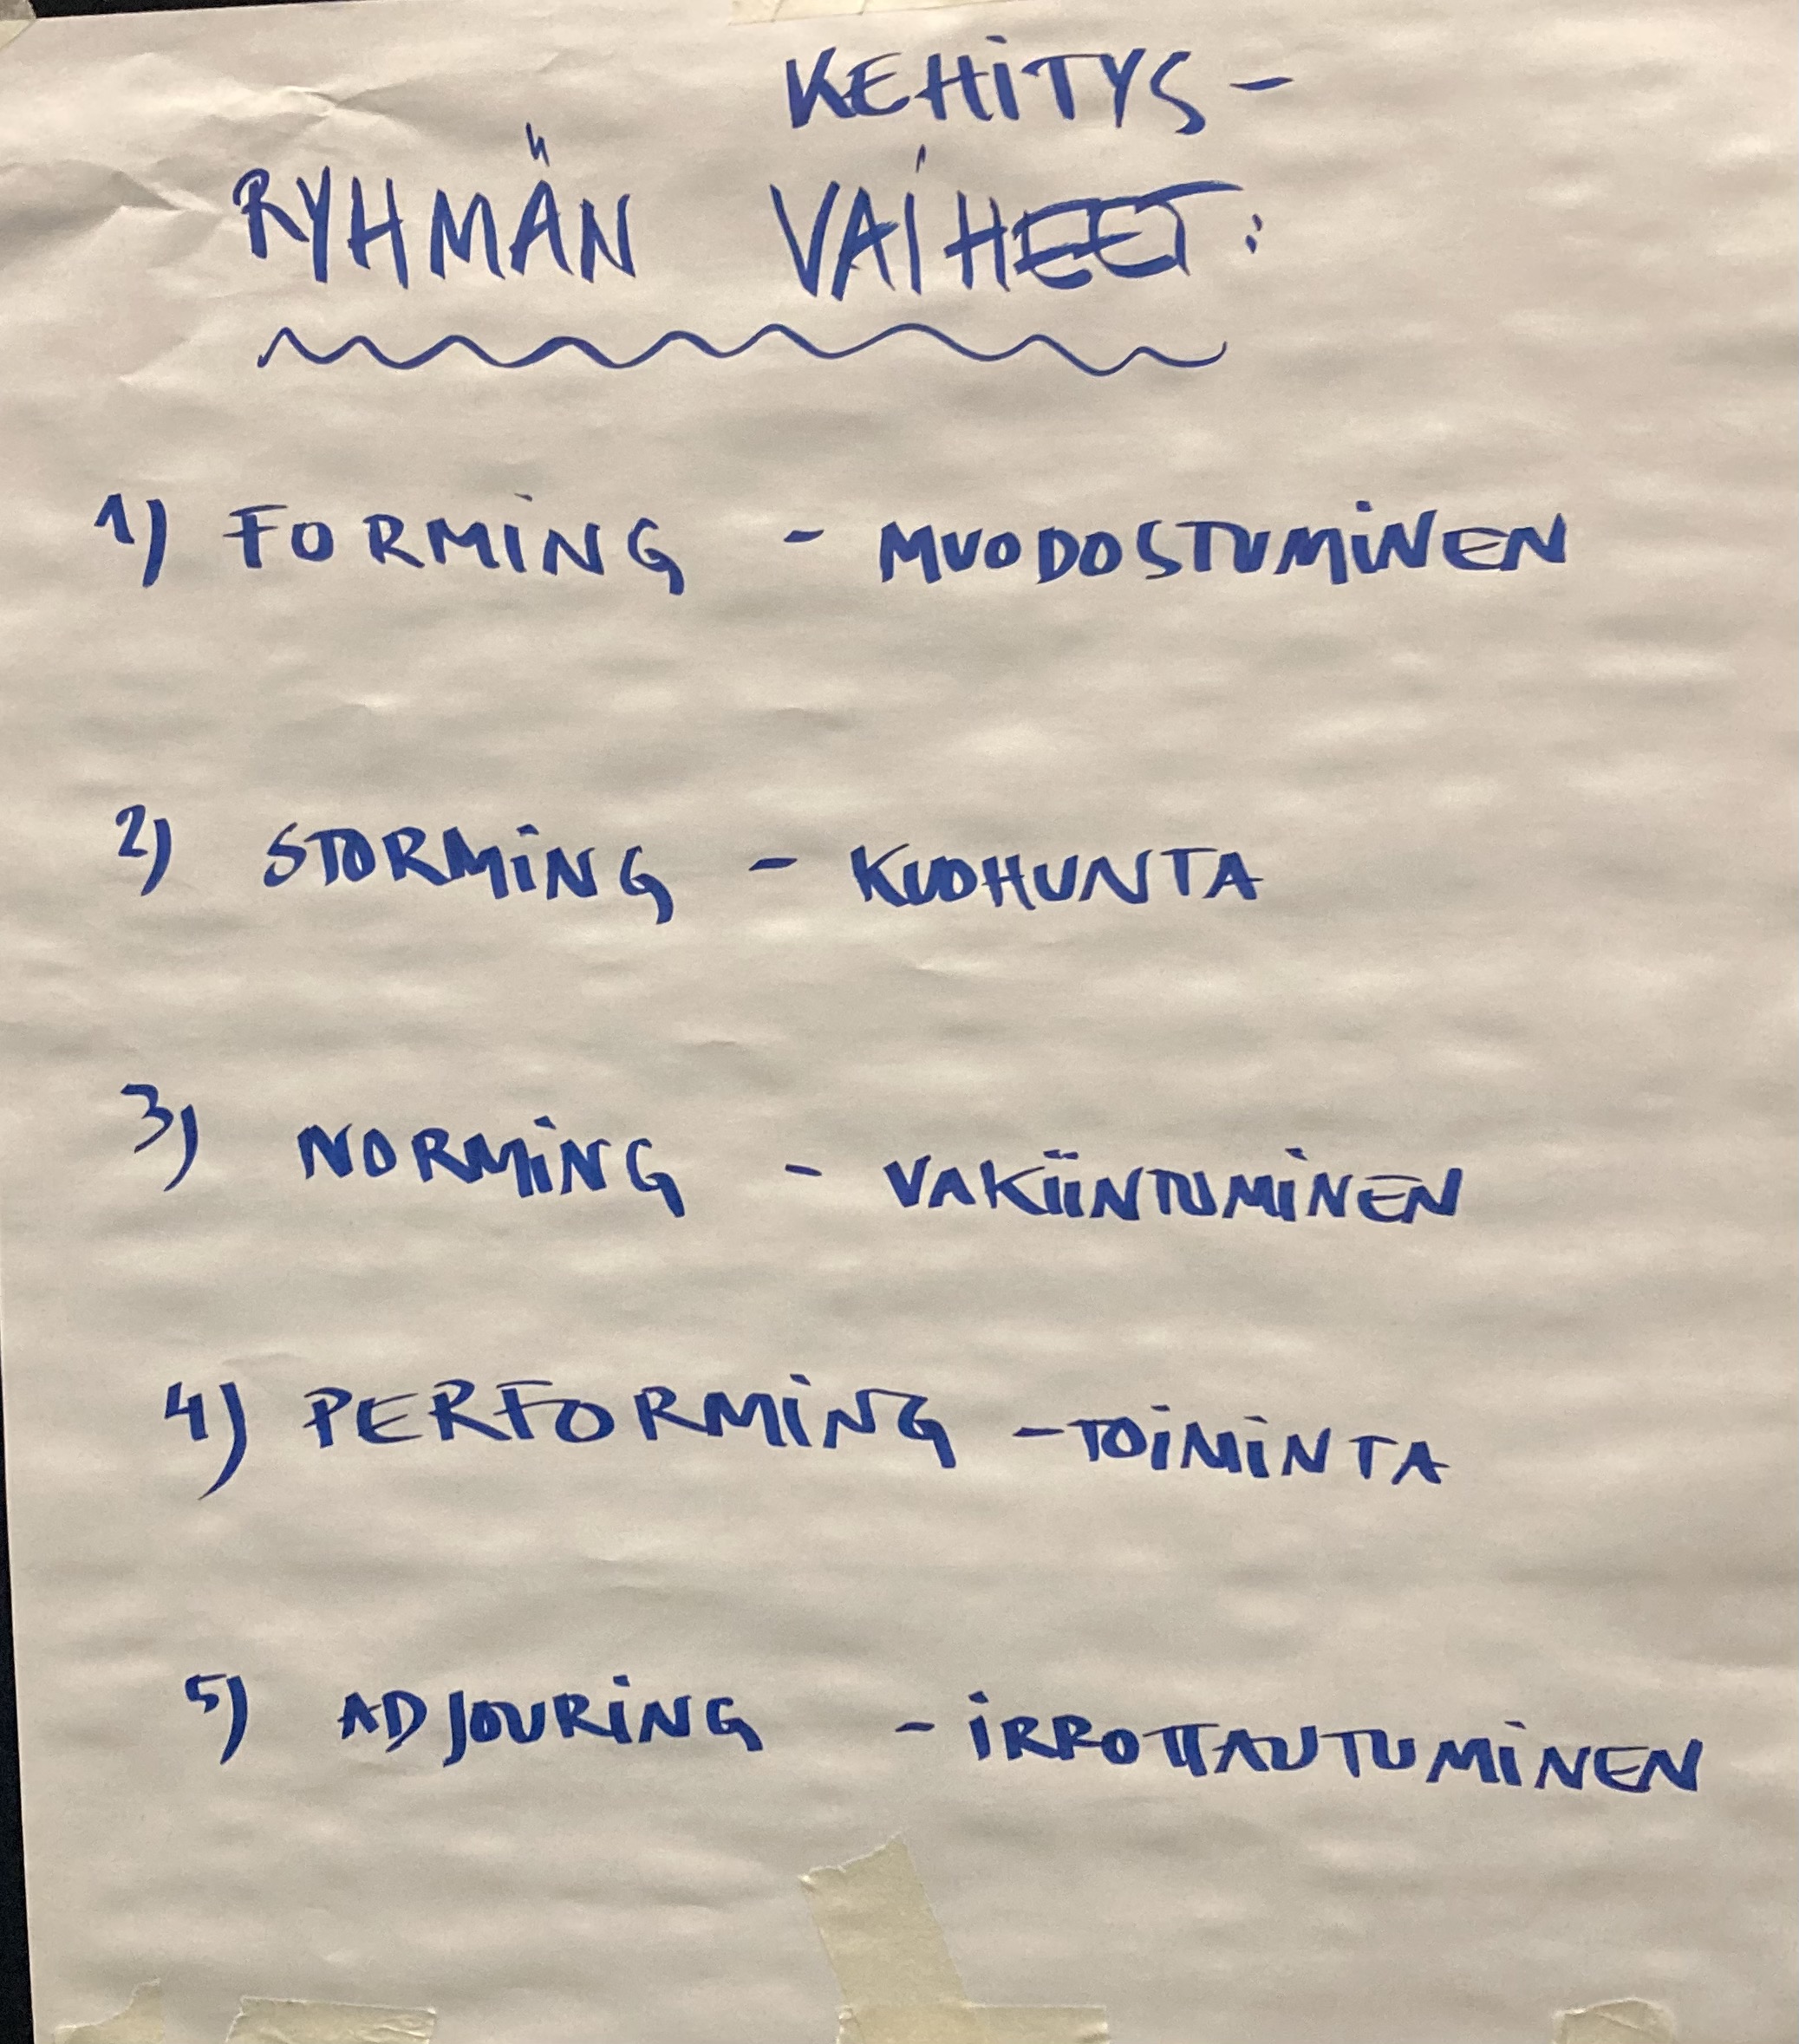 KEHITYS-
RYHMÄN VAIHEET:
1) FORMING - MUODOSTUMINEN
2) STORMING - KUOHUNTA
3) NORMING - VAKIINTUMINEN
4) PERFORMING - TOIMINTA
5) ADJOURING - IRROTTAUTUMINEN